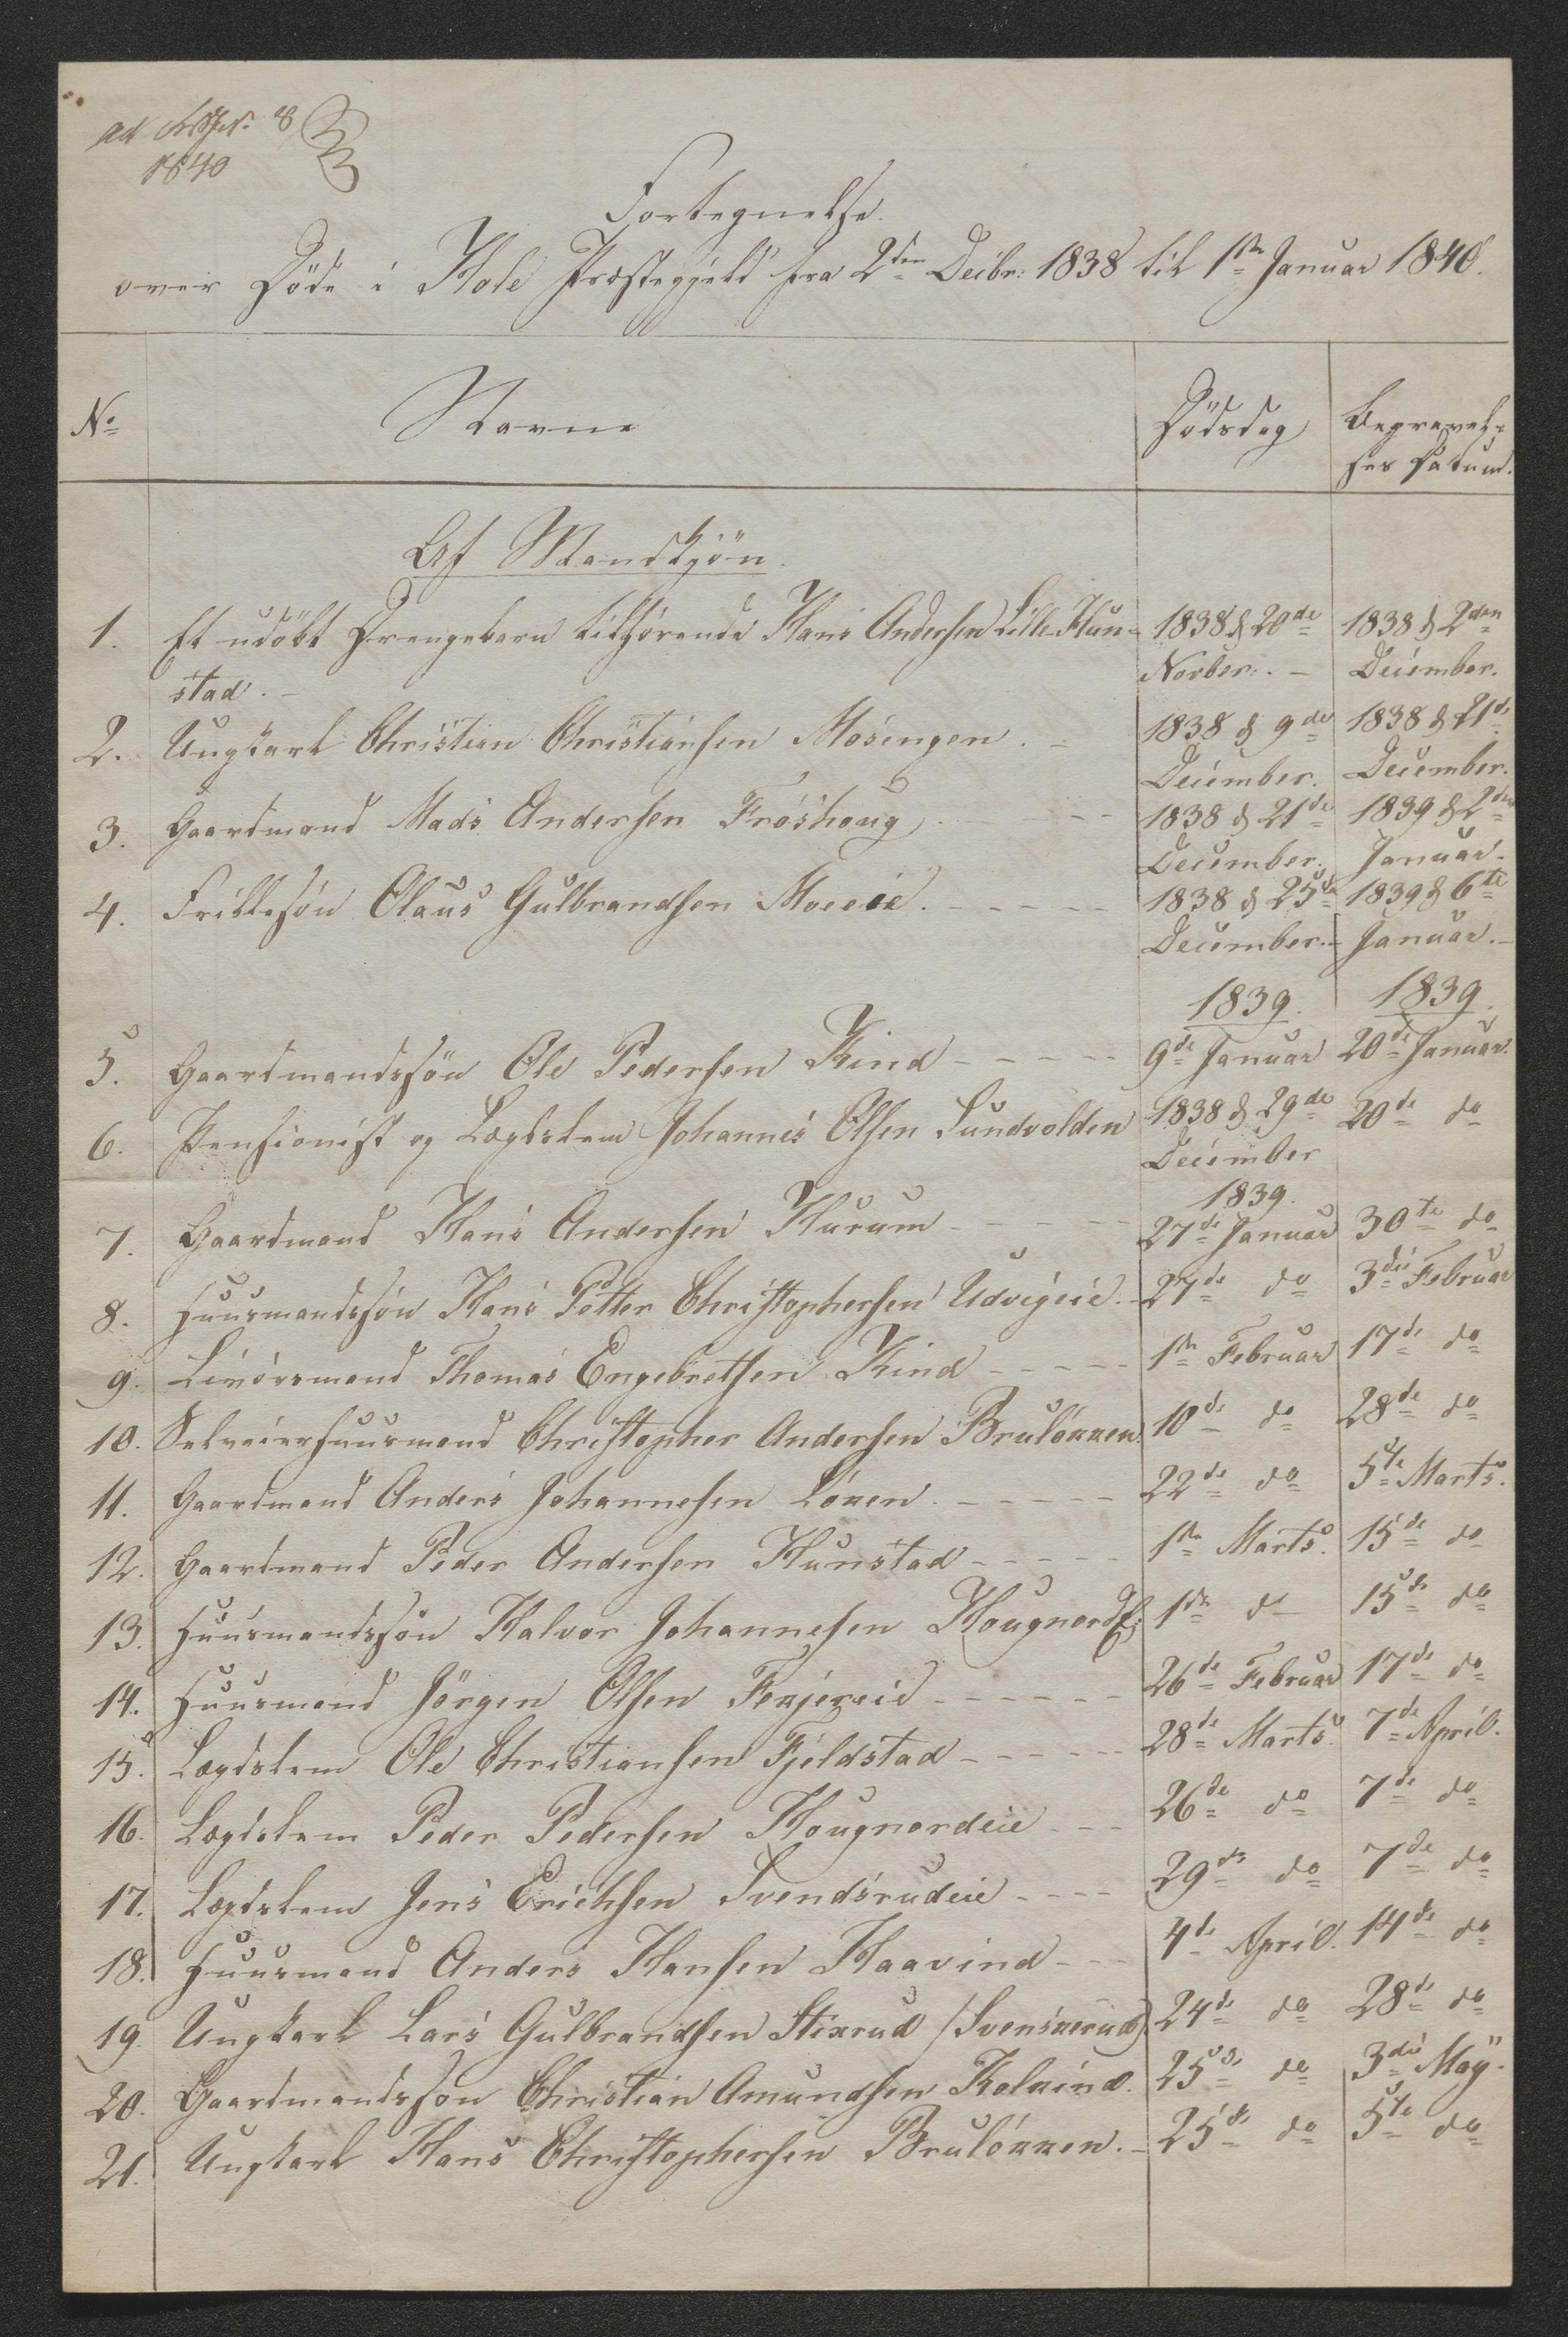 ad 8
1840
Fortegnelse
over Døde i Hole Præstegjeld fra 2den Decbr: 1838 til 1ste Januar 1840.
No Navne Dødsdag Begravel-
ses Datum.
Af Mandkjøn.
1. Et udøbt Drengebarn tilhørende Hans Andersen Lille Hun- 1838 d 20de 1838 d 2den
stad. – Novber: – December.
2. Ungkarl Christian Christiansen Mosengen. – 1838 d 9de 1838 d 21de
December. December.
3. Gaardmand Mads Andersen Frøshoug 1838 d 21de 1839 d 2den
December. Januar.
4. Frillesøn Olaus Gulbrandsen Moeeie. 1838 d 25de 1839 d 6te
December. – Januar. –
1839. 1839.
5. Gaardmandssøn Ole Pedersen Kind 9de Januar 20de Januar.
6. Pensionist og Lægdslem Johannes Olsen Sundvolden 1838 d 29de 20de do
December
1839.
7. Gaardmand Hans Andersen Hurum 27de Januar 30te do
8. Huusmandssøn Hans Petter Christophersen Udvigeie. 27de do 3die Februar
9. Livørsmand Thomas Engebretsen Kind 1ste Februar 17de do
10. Selveierhuusmand Christopher Andersen Bruløkken. 10de do 28de do
11. Gaardmand Anders Johannesen Løken. 22de do 5te Marts.
12. Gaardmand Peder Andersen Hunstad 1ste Marts. 15de do
13. Huusmandssøn Halvor Johannesen Hougnord E: 1ste do 15de do
14. Huusmand Jørgen Olsen Fekjereie 26de Februar 17de do
15. Lægdslem Ole Christiansen Fjeldstad 28de Marts. 7de April.
16. Lægdslem Peder Pedersen Hougnordeie 26de do 7de do
17. Lægdslem Jens Erichsen Svendsrudeie 29de do 7de do
18. Huusmand Anders Hansen Haavind 4de April. 14de do
19. Ungkarl Lars Gulbrandsen Stixrud /Svenskerud) 24de do 28de do
20. Gaardmandssøn Christian Amundsen Kolkind. 25de do 3die May.
21. Ungkarl Hans Christophersen Bruløkken. – 25de do 5te do